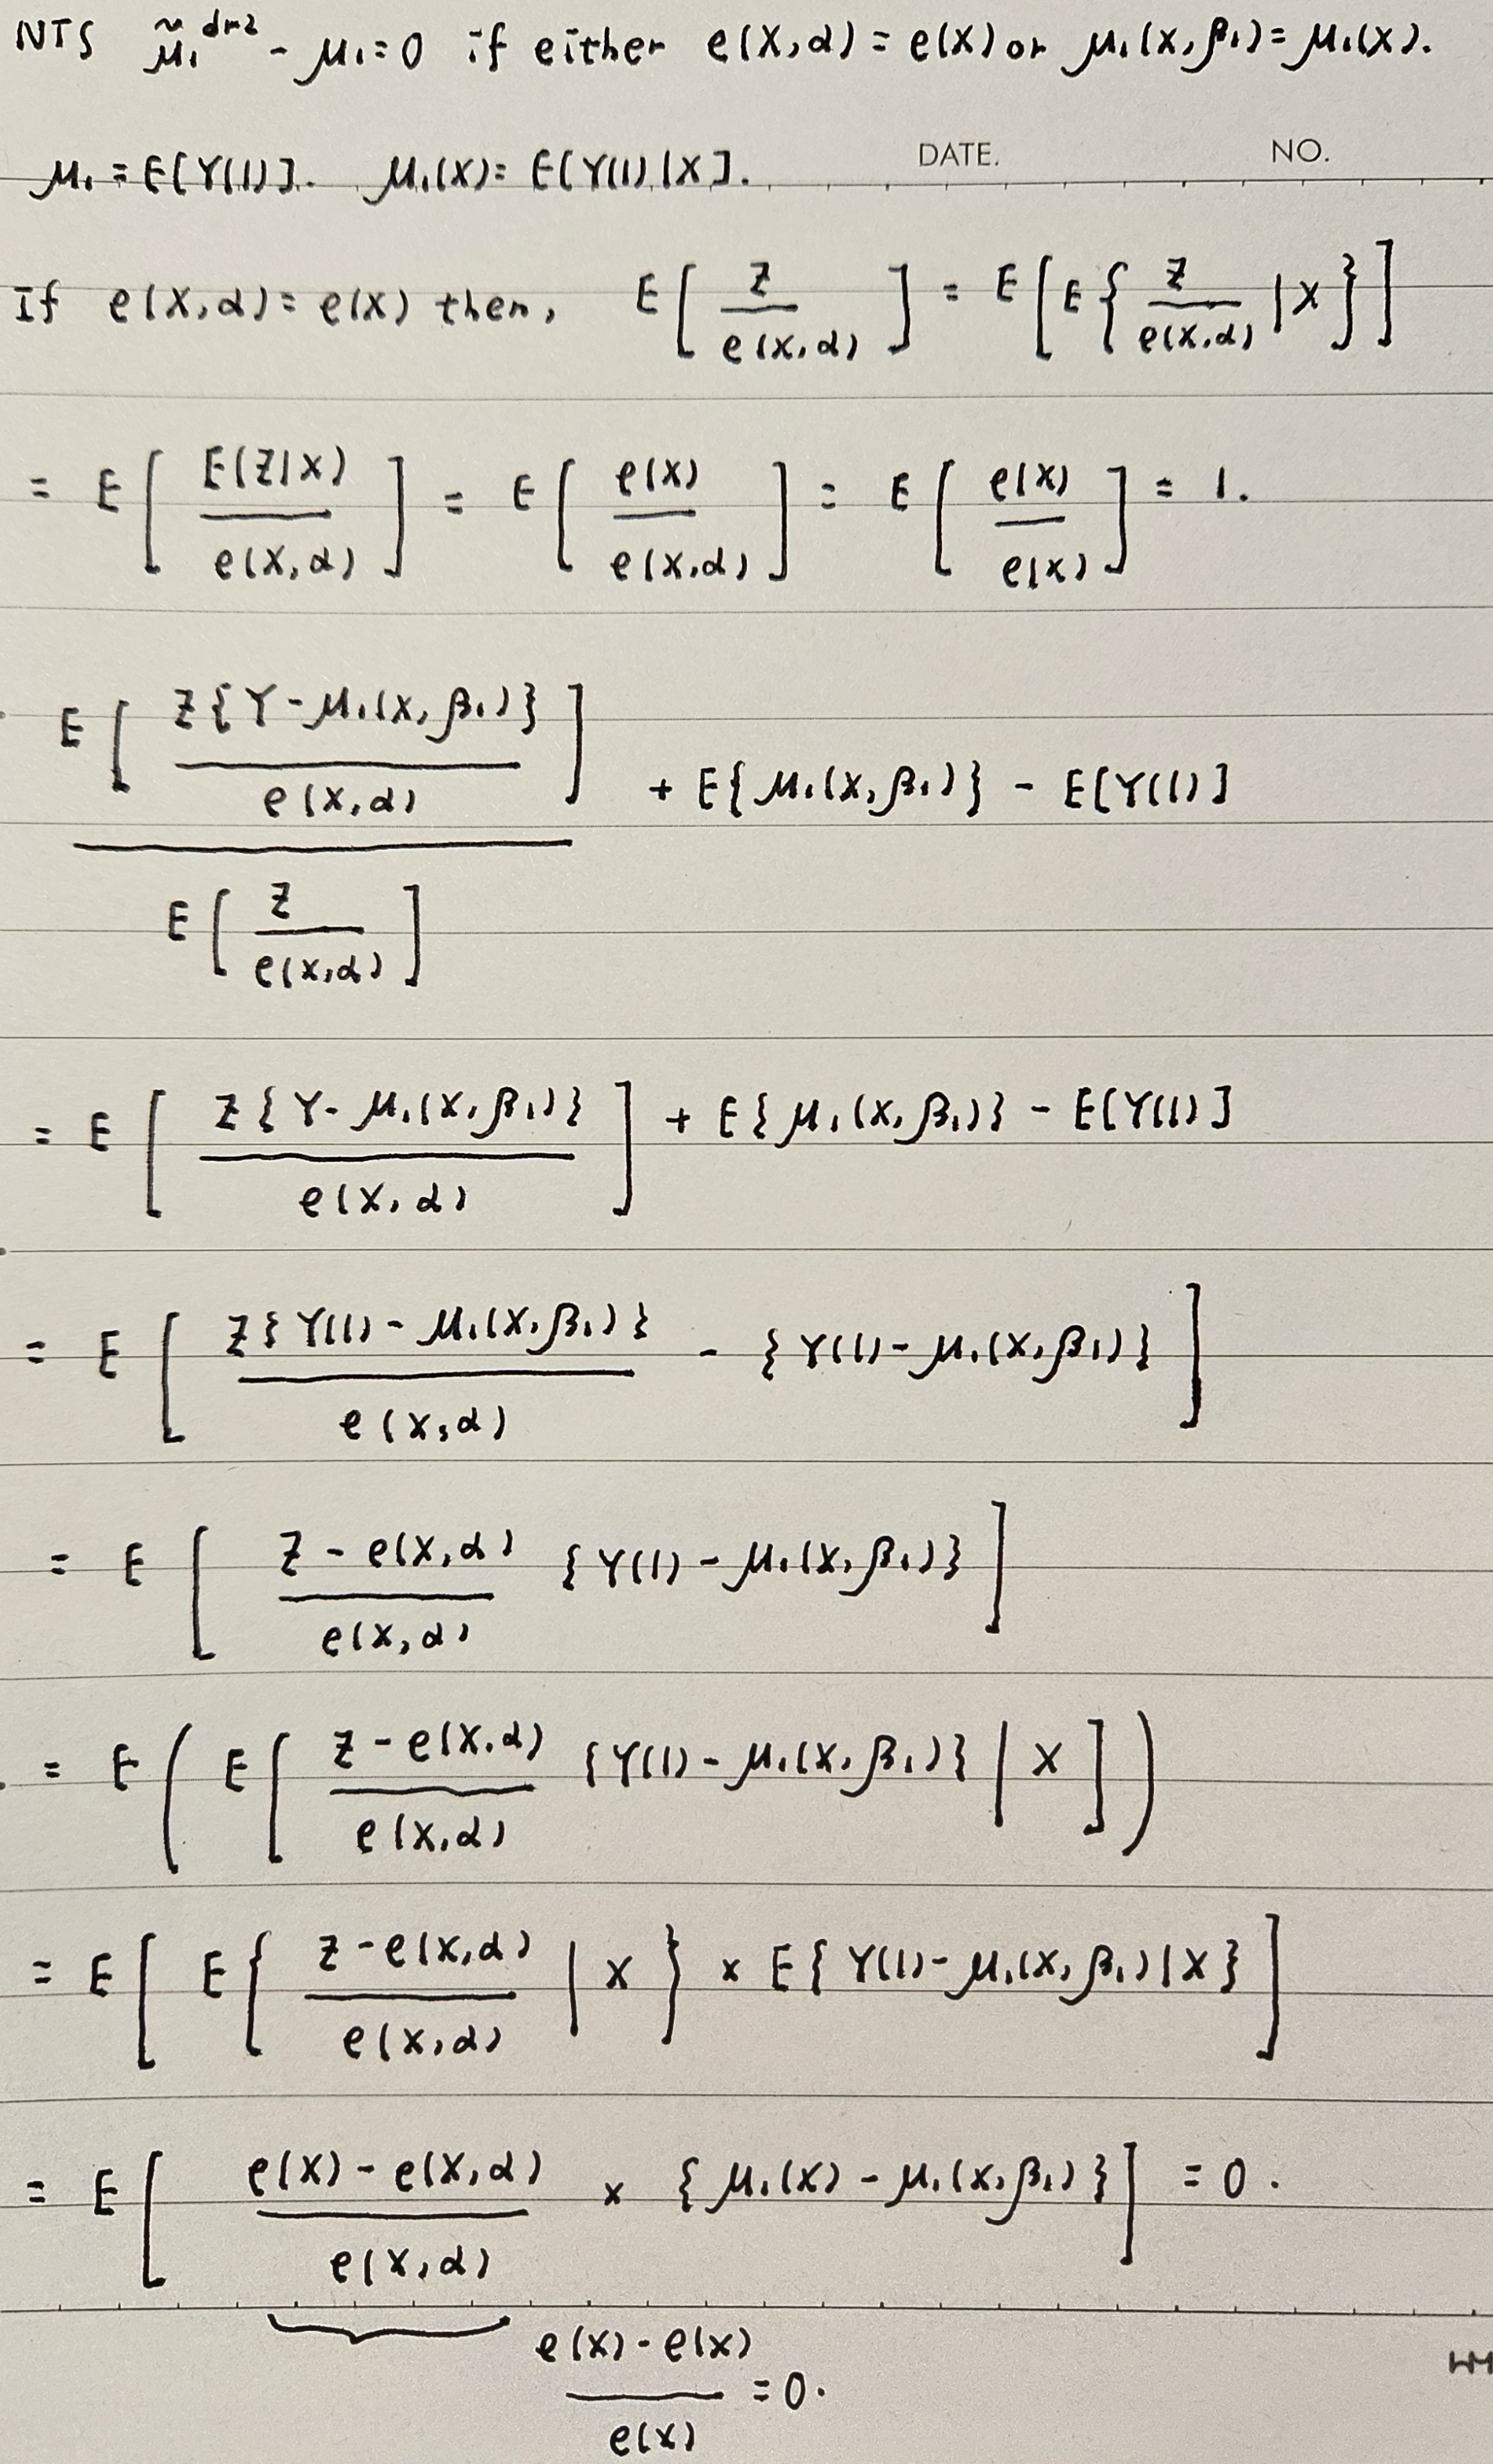 NTS μ̃₁^dr2 - μ₁ = 0 if either e(X,α) = e(X) or μ₁(X,β₁) = μ₁(X).
DATE. NO.
μ₁ = E[Y(1)]. μ₁(X) = E[Y(1)|X].
If e(X,α) = e(X) then, E[ Z / e(X,α) ] = E[ E{ Z / e(X,α) | X } ]
= E[ E(Z|X) / e(X,α) ] = E[ e(X) / e(X,α) ] = E[ e(X) / e(X) ] = 1.
E[ Z{Y - μ₁(X,β₁)} / e(X,α) ] / E[ Z / e(X,α) ] + E{μ₁(X,β₁)} - E[Y(1)]
= E[ Z{Y - μ₁(X,β₁)} / e(X,α) ] + E{μ₁(X,β₁)} - E[Y(1)]
= E[ Z{Y(1) - μ₁(X,β₁)} / e(X,α) - {Y(1) - μ₁(X,β₁)} ]
= E[ Z - e(X,α) / e(X,α) {Y(1) - μ₁(X,β₁)} ]
= E( E[ Z - e(X,α) / e(X,α) {Y(1) - μ₁(X,β₁)} | X ] )
= E[ E{ Z - e(X,α) / e(X,α) | X } × E{ Y(1) - μ₁(X,β₁) | X } ]
= E[ e(X) - e(X,α) / e(X,α) × { μ₁(X) - μ₁(X,β₁) } ] = 0.
e(X) - e(X) / e(X) = 0.